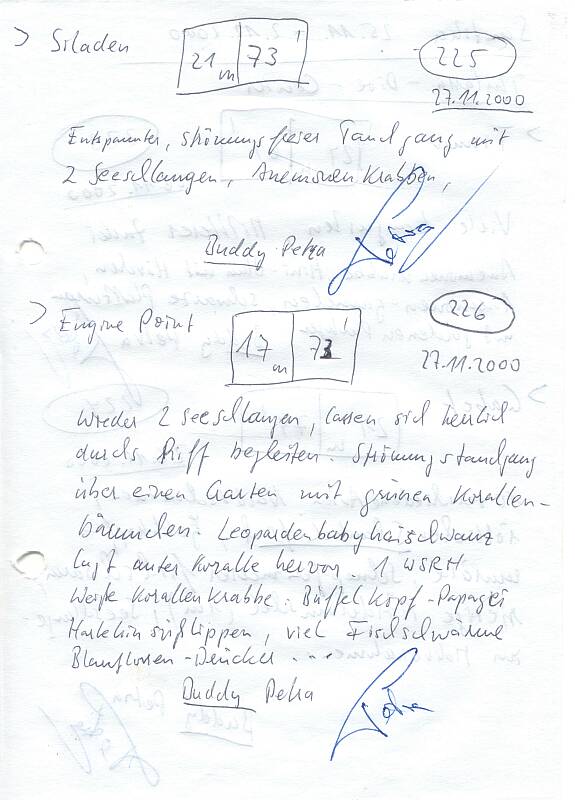 > Siladen 21m 73' 225
27.11.2000
Entspannter, strömungsfreier Tauchgang mit
2 Seeschlangen, Anemonen Krabben,
Buddy Petra Petra
> Engine Point 17m 73' 226
27.11.2000
Wieder 2 Seeschlangen, lassen sich herrlich
durchs Riff begleiten. Strömungstauchgang
über einen Garten mit grünen Korallen-
bäumchen. Leopardenbabyhaischwanz
lugt unter Koralle hervor. 1 WSRH
Weiße Korallenkrabbe. Büffelkopf-Papagei
Harlekinsüßlippen, viel Fischschwärme
Blauflossen-Drücker ...
Buddy Petra Petra